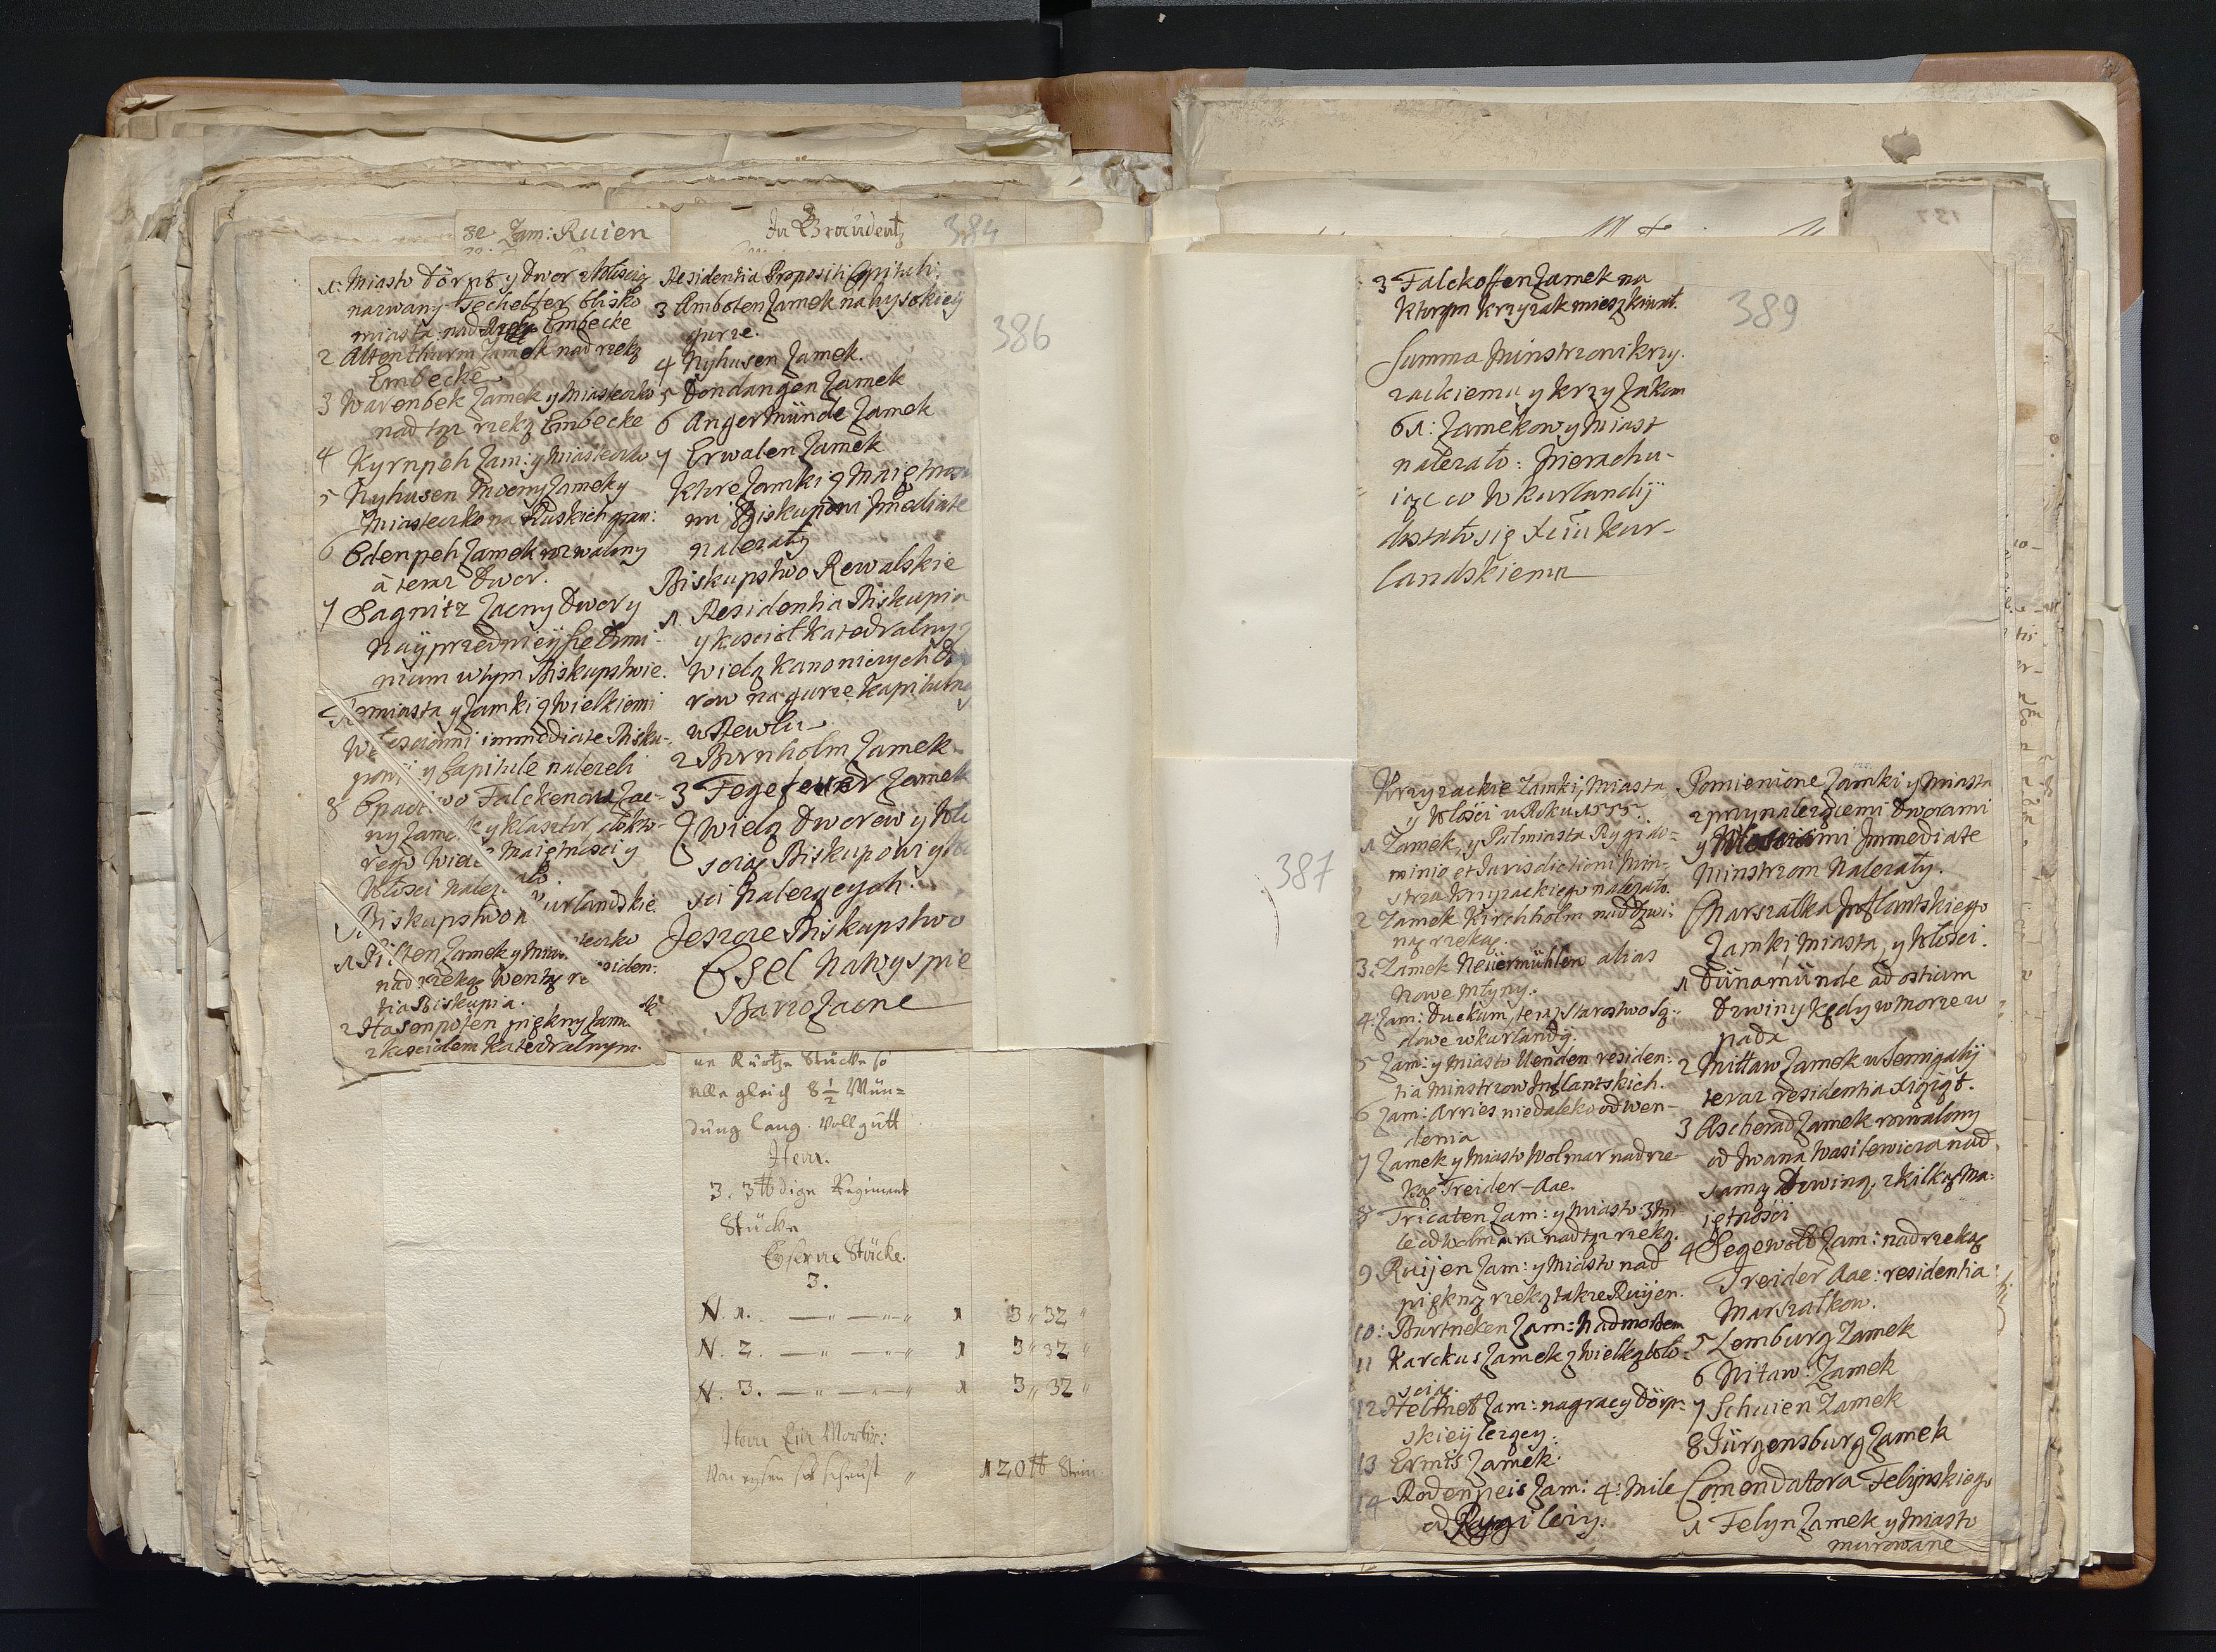 32 Zam: Ruien
In Braudentz
384
1. Miasto Dörpt y Dwor
nazwany Techelfer blisko
miasta nad Embecke
2 Altenthurm Zamek nad rzeką
Embecke
3 Warenbek Zamek y Miasteczko
nad tąz rzeką Embecke
4 Kyrnpeh Zam: y Miasteczko
5 Nyhusen Zamek y
Miasteczko na Ruskich gran:
6 Odenpeh Zamek rozwalony
à teraz Dwor.
7 Sagnitz Zacny Dwor y
nayprzednieysze Domi-
nium w tym Biskupstwie.
miasta y Zamki z wielkiemi
immediate Bisku-
powi y Capitule nalezeli
8 Falckenau Zac-
ny Zamek y klasztor, do kto-
rego wiele Maiętnosci y
Włosci nalez ało
Biskupstwo Kurlandskie.
1 Pilten Zamek y Miasteczko
nad rzeką Wentą residen-
tia Biskupia.
2 Hasenpoten piękny Zamek
z kosciolem Katedralnym.
Residentia Propositi Capituli.
3 Amboten Zamek na wysokiey
gurze.
4 Nyhusen Zamek.
5 Dondangen Zamek
6 Angermünde Zamek
7 Erwalen Zamek
ktore Zamki z Maiętnosci
mi Biskupowi Immediate
nalezały
Biskupstwo Rewalskie
1. Residentia Biskupia
y kosciół katedralny z
wielą kanoniczych Dwo
row na gurze kapitulney
w Rewlu
2 Bornholm Zamek
3 Fegefeuer Zamek
z wielą Dworow y Wło
scią Biskupowi y
sci nalezących.
Jeszcze Biskupstwo
Esel na wyspie
Barzo Zacne
386
ne Kurtze Stücke so
alle gleich 8 1/2 Mün=
dung lang. Vollgutt
Item.
3. 3 ℔dige Regiment
Stücke
Eyserne Stücke.
3.
N. 1. — „ — „ 1 3 „ 32 „
N. 2. — „ — „ 1 3 „ 32 „
N. 3. — „ — „ 1 3 „ 32 „
Item Ein Mortir:
Von eysen so scheust „ 120 ℔ Stein
387
3 Falckoffen Zamek na
ktorym krzyzak mieszkiwał.
Summa Minstrzowi krzy-
zackiemu y krzyzakom
61: Zamekow y Miast
nalezało: Nierachu-
iąc co w Kurlandÿ
dostało się Xciu Kur-
landskiemu
389
Krzyzackie Zamki, Miasta
y Włości w Roku 1555.
1 Zamek, y Pułmiasta Rygi do-
minio et Jurisdictioni Min-
strza Krzyzackiego nalezało.
2 Zamek Kirchholm nad Dzwi-
ną rzeką.
3. Zamek Neuermühlen alias
Nowe Młyny.
4. Zam: Duckum, teraz Starostwo Są-
dowe w Kurlandÿ.
5 Zam: y Miasto Wenden residen-
tia Minstrzow Inflantskich.
6 Zam: Arries niedaleko od Wen-
denia
7 Zamek y Miasto Wolmar nad rze-
ką Treider-Aae.
8 Tricaten Zam: y Miasto 3 mi-
le od Wolmara nad tąz rzeką.
9 Ruijen Zam: y Miasto nad
piękną rzeką takze Ruijen.
10: Burtneken Zam: nad morzem
11 Karckus Zamek z wielką wło-
scią.
12 Helmet Zam: na gracy Dörp-
skiey lezący.
13 Ermis Zamek:
14 Rodenpeis Zam: 4. Mile
od Rygi lezy.
Pomienione Zamki y Miasta
z przynalezącemi Dworami
y Włosciami Immediate
Minstrzom Nalezały.
Marszałka Inflantskiego
Zamki, Miasta, y Włosci.
1 Dünamünde ad ostium
Dzwiny kędy w morze w
pada
2 Mittaw Zamek w Semigalÿ
teraz residentia Xiązęt.
3 Ascherad Zamek rozwalony
od Iwana Wasilewicza nad
samą Dzwiną, z kilką Ma-
iętnosci
4 Segewold Zam: nad rzeką
Treider Aae: residentia
Marszałkow.
5 Lemburg Zamek
6 Nitaw: Zamek
7 Schuien Zamek
8 Jürgensburg Zamek
Comendattora Felÿnskiego
1 Felyn Zamek y Miasto
murowane